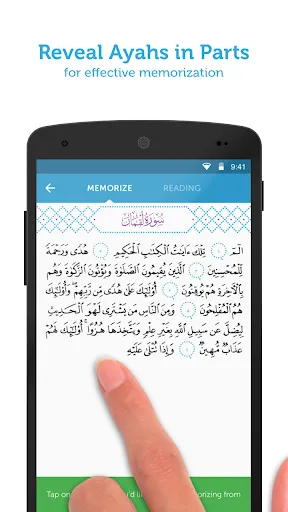 Reveal Ayahs in Parts
for effective memorization
9:41
MEMORIZE
READING
سُورَةُ لُقْمَانَ
الٓمٓ ١ تِلْكَ ءَايَٰتُ ٱلْكِتَٰبِ ٱلْحَكِيمِ ٢ هُدًى وَرَحْمَةً
لِّلْمُحْسِنِينَ ٣ ٱلَّذِينَ يُقِيمُونَ ٱلصَّلَوٰةَ وَيُؤْتُونَ ٱلزَّكَوٰةَ وَهُم
بِٱلْأَخِرَةِ هُمْ يُوقِنُونَ ٤ أُو۟لَٰٓئِكَ عَلَىٰ هُدًى مِّن رَّبِّهِمْ ۖ وَأُو۟لَٰٓئِكَ
هُمُ ٱلْمُفْلِحُونَ ٥ وَمِنَ ٱلنَّاسِ مَن يَشْتَرِى لَهْوَ ٱلْحَدِيثِ
لِيُضِلَّ عَن سَبِيلِ ٱللَّهِ بِغَيْرِ عِلْمٍ وَيَتَّخِذَهَا هُزُوًا ۚ أُو۟لَٰٓئِكَ لَهُمْ
عَذَابٌ مُّهِينٌ ٦ وَإِذَا تُتْلَىٰ عَلَيْهِ
Tap on 'd li orizing from